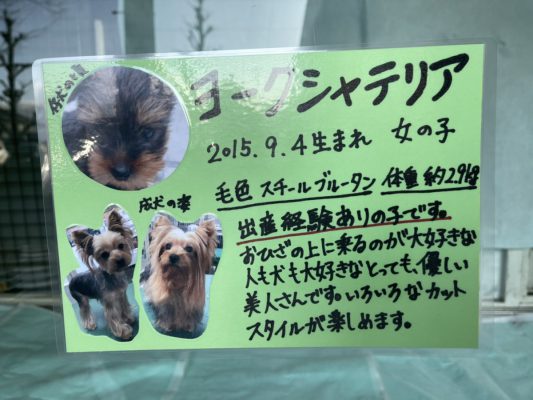 ヨークシャテリア
2015.9.4生まれ 女の子
毛色 スチールブルータン 体重 約2.9kg
成犬の姿
出産経験ありの子です。
おひざの上に乗るのが大好きな
人も犬も大好きなとっても、優しい
美人さんです。いろいろなカット
スタイルが楽しめます。